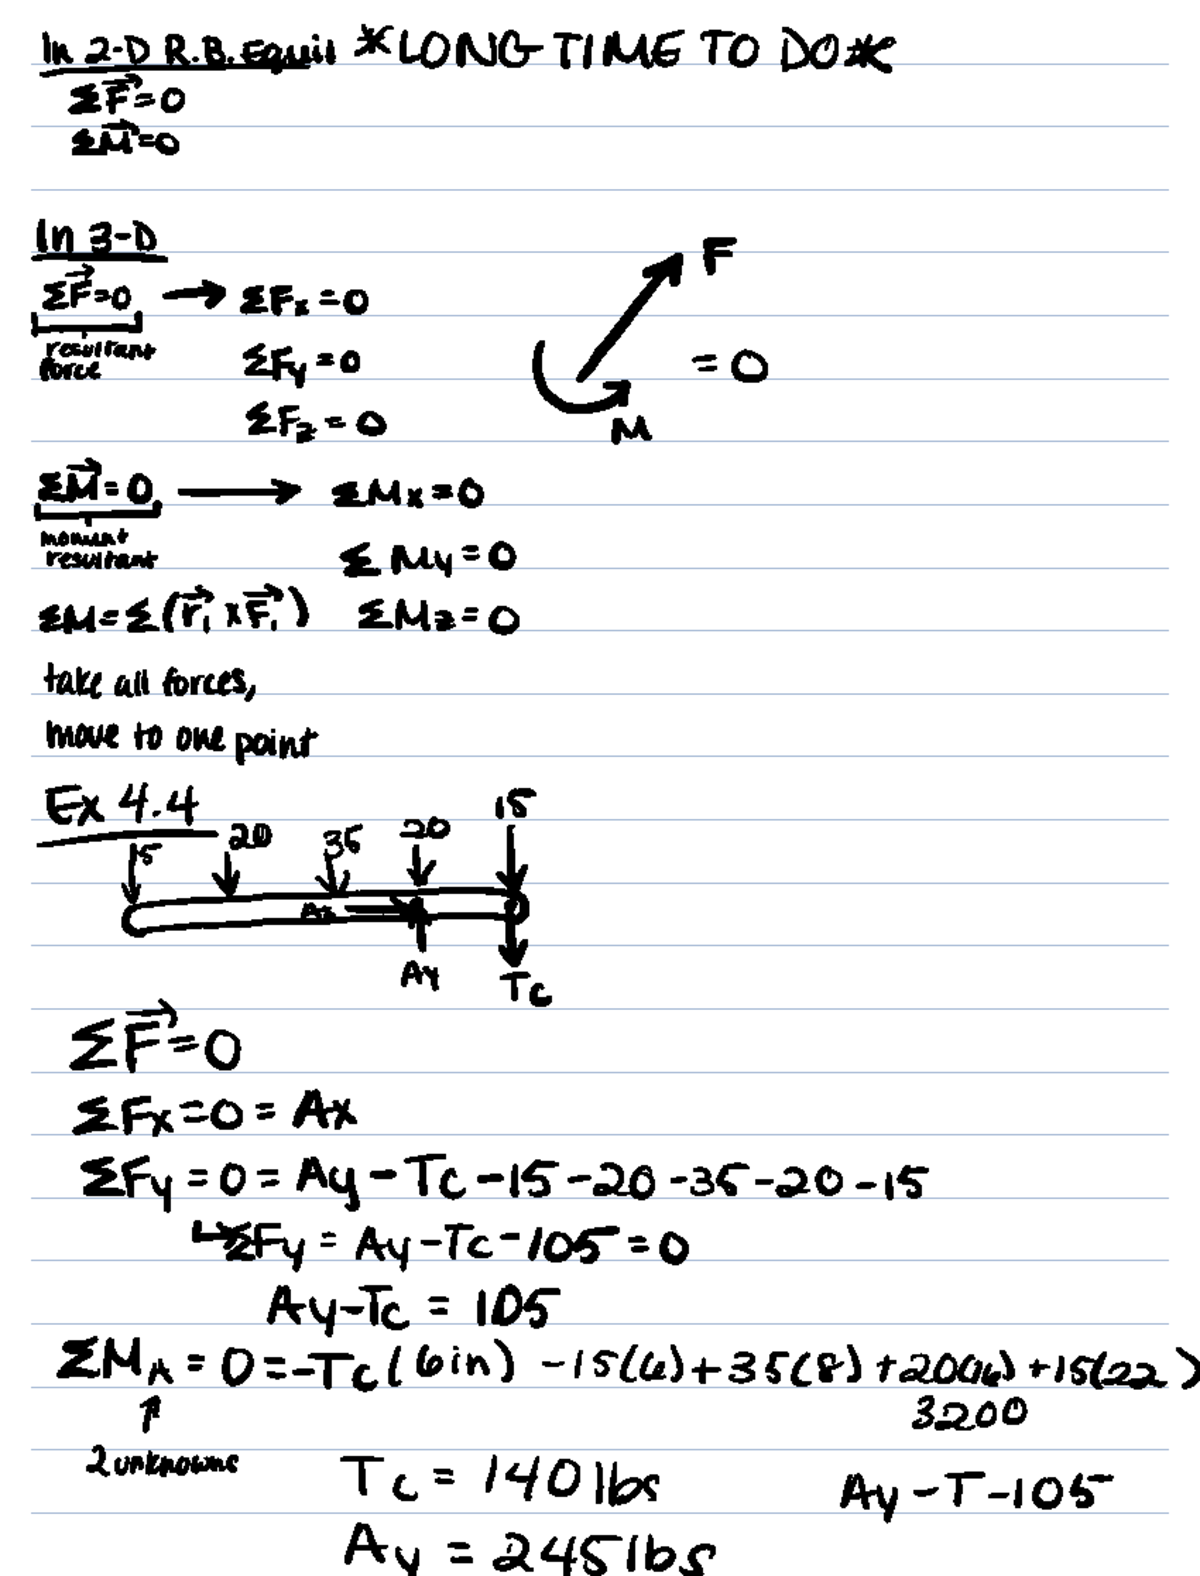 In 2-D R.B. Equil *LONG TIME TO DO*
ΣF⃗=0
ΣM⃗=0
In 3-D
ΣF⃗=0 → ΣFx=0
resultant
force
ΣFy=0
ΣFz=0
F
=0
M
ΣM⃗=0 → ΣMx=0
moment
resultant
ΣMy=0
ΣM=Σ(r⃗₁ x F⃗₁) ΣMz=0
take all forces,
move to one point
Ex 4.4
15 20 35 20 15
Ax
Ay Tc
ΣF⃗=0
ΣFx=0=Ax
ΣFy=0=Ay-Tc-15-20-35-20-15
↳ΣFy=Ay-Tc-105=0
Ay-Tc=105
ΣMA=0=-Tc(6in) -15(6)+35(8)+20(16)+15(22)
↑ 3200
2 unknowns
Tc=140lbs Ay-T-105
Ay=245lbs